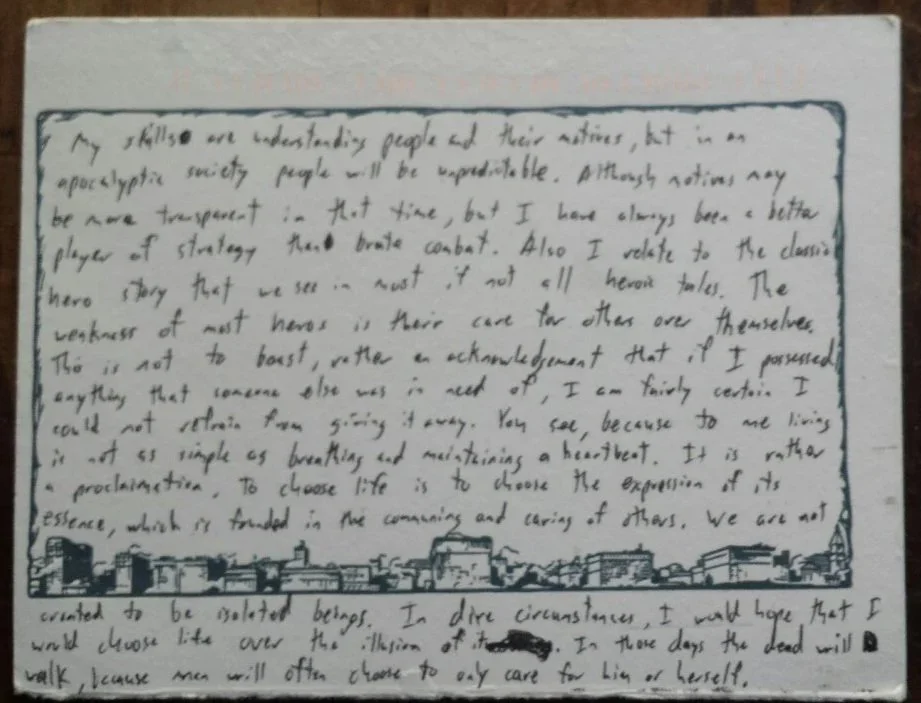 My skills are understanding people and their motives, but in an
apocalyptic society people will be unpredictable. Although motives may
be more transparent in that time, but I have always been a better
player of strategy than brute combat. Also I relate to the classic
hero story that we see in most if not all heroic tales. The
weakness of most heros is their care for others over themselves.
This is not to boast, rather an acknowledgement that if I possessed
anything that someone else was in need of, I am fairly certain I
could not refrain from giving it away. You see, because to me living
is not as simple as breathing and maintaining a heartbeat. It is rather
a proclaimation. To choose life is to choose the expression of its
essence, which is founded in the communing and caring of others. We are not
created to be isolated beings. In dire circumstances, I would hope that I
would choose life over the illusion of it. In those days the dead will
walk, because men will often choose to only care for him or herself.